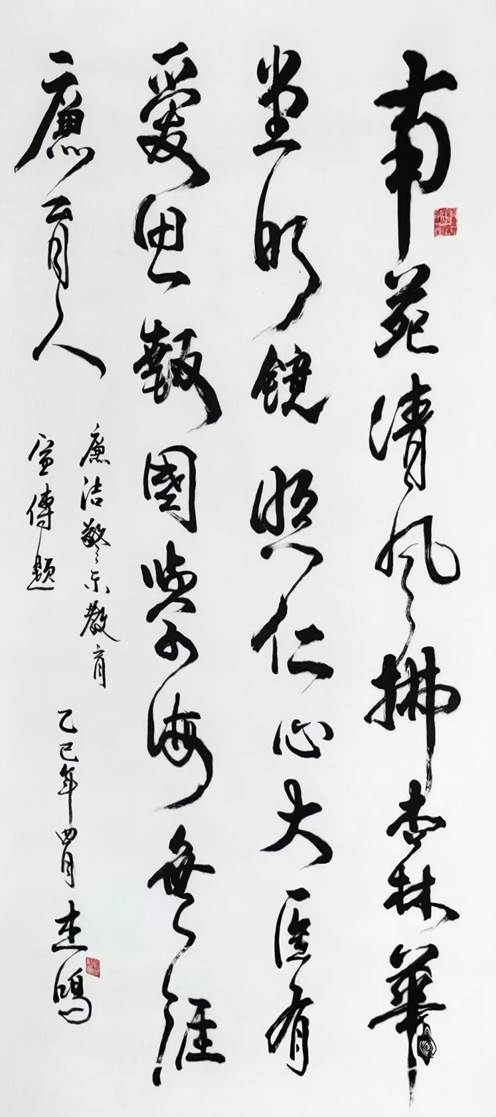 南苑清风拂杏林华
堂明镜照仁心大医有
爱思报国学海无涯
廉育人
廉洁警示教育
宣传题
乙巳年四月 志鸿